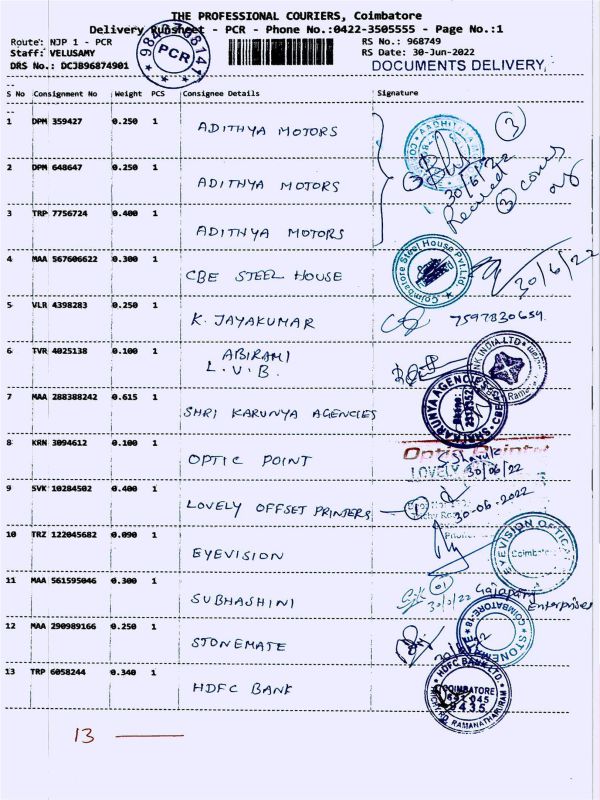 THE PROFESSIONAL COURIERS, Coimbatore
Delivery Runsheet - PCR - Phone No.:0422-3505555 - Page No.:1
Route: NJP 1 - PCR RS No.: 968749
Staff: VELUSAMY RS Date: 30-Jun-2022
DRS No.: DCJB96874901 DOCUMENTS DELIVERY
PCR
S No Consignment No Weight PCS Consignee Details Signature
1 DPM 359427 0.250 1 ADITHYA MOTORS
3
2 DPM 648647 0.250 1 ADITHYA MOTORS
30/6/22
Received 3 cours
3 TRP 7756724 0.400 1 ADITHYA MOTORS
4 MAA 567606622 0.300 1 CBE STEEL HOUSE
Coimbatore Steel House Pvt.Ltd.
30/6/22
5 VLR 4398283 0.250 1 K. JAYAKUMAR 7597830659
6 TVR 4025138 0.100 1 ABIRAMI
L.V.B.
INDIA LTD
7 MAA 288388242 0.615 1 SHRI KARUNYA AGENCIES
SHRI KARUNYA AGENCIES CBE
8 KRN 3094612 0.100 1 OPTIC POINT
Optic Point
LOVELY 30/06/22
9 SVK 10284502 0.400 1 LOVELY OFFSET PRINTERS 1
30-06-2022
10 TRZ 122045682 0.090 1 EYEVISION
Phone
EYEVISION OPTICAL
Coimbatore
11 MAA 561595046 0.300 1 SUBHASHINI
01
Enterprises
12 MAA 290989166 0.250 1 STONEMATE
STONEMATE COIMBATORE-18
13 TRP 6058244 0.340 1 HDFC BANK
HDFC BANK LTD.
COIMBATORE
641 045
9435
RAMANATHAPURAM
13